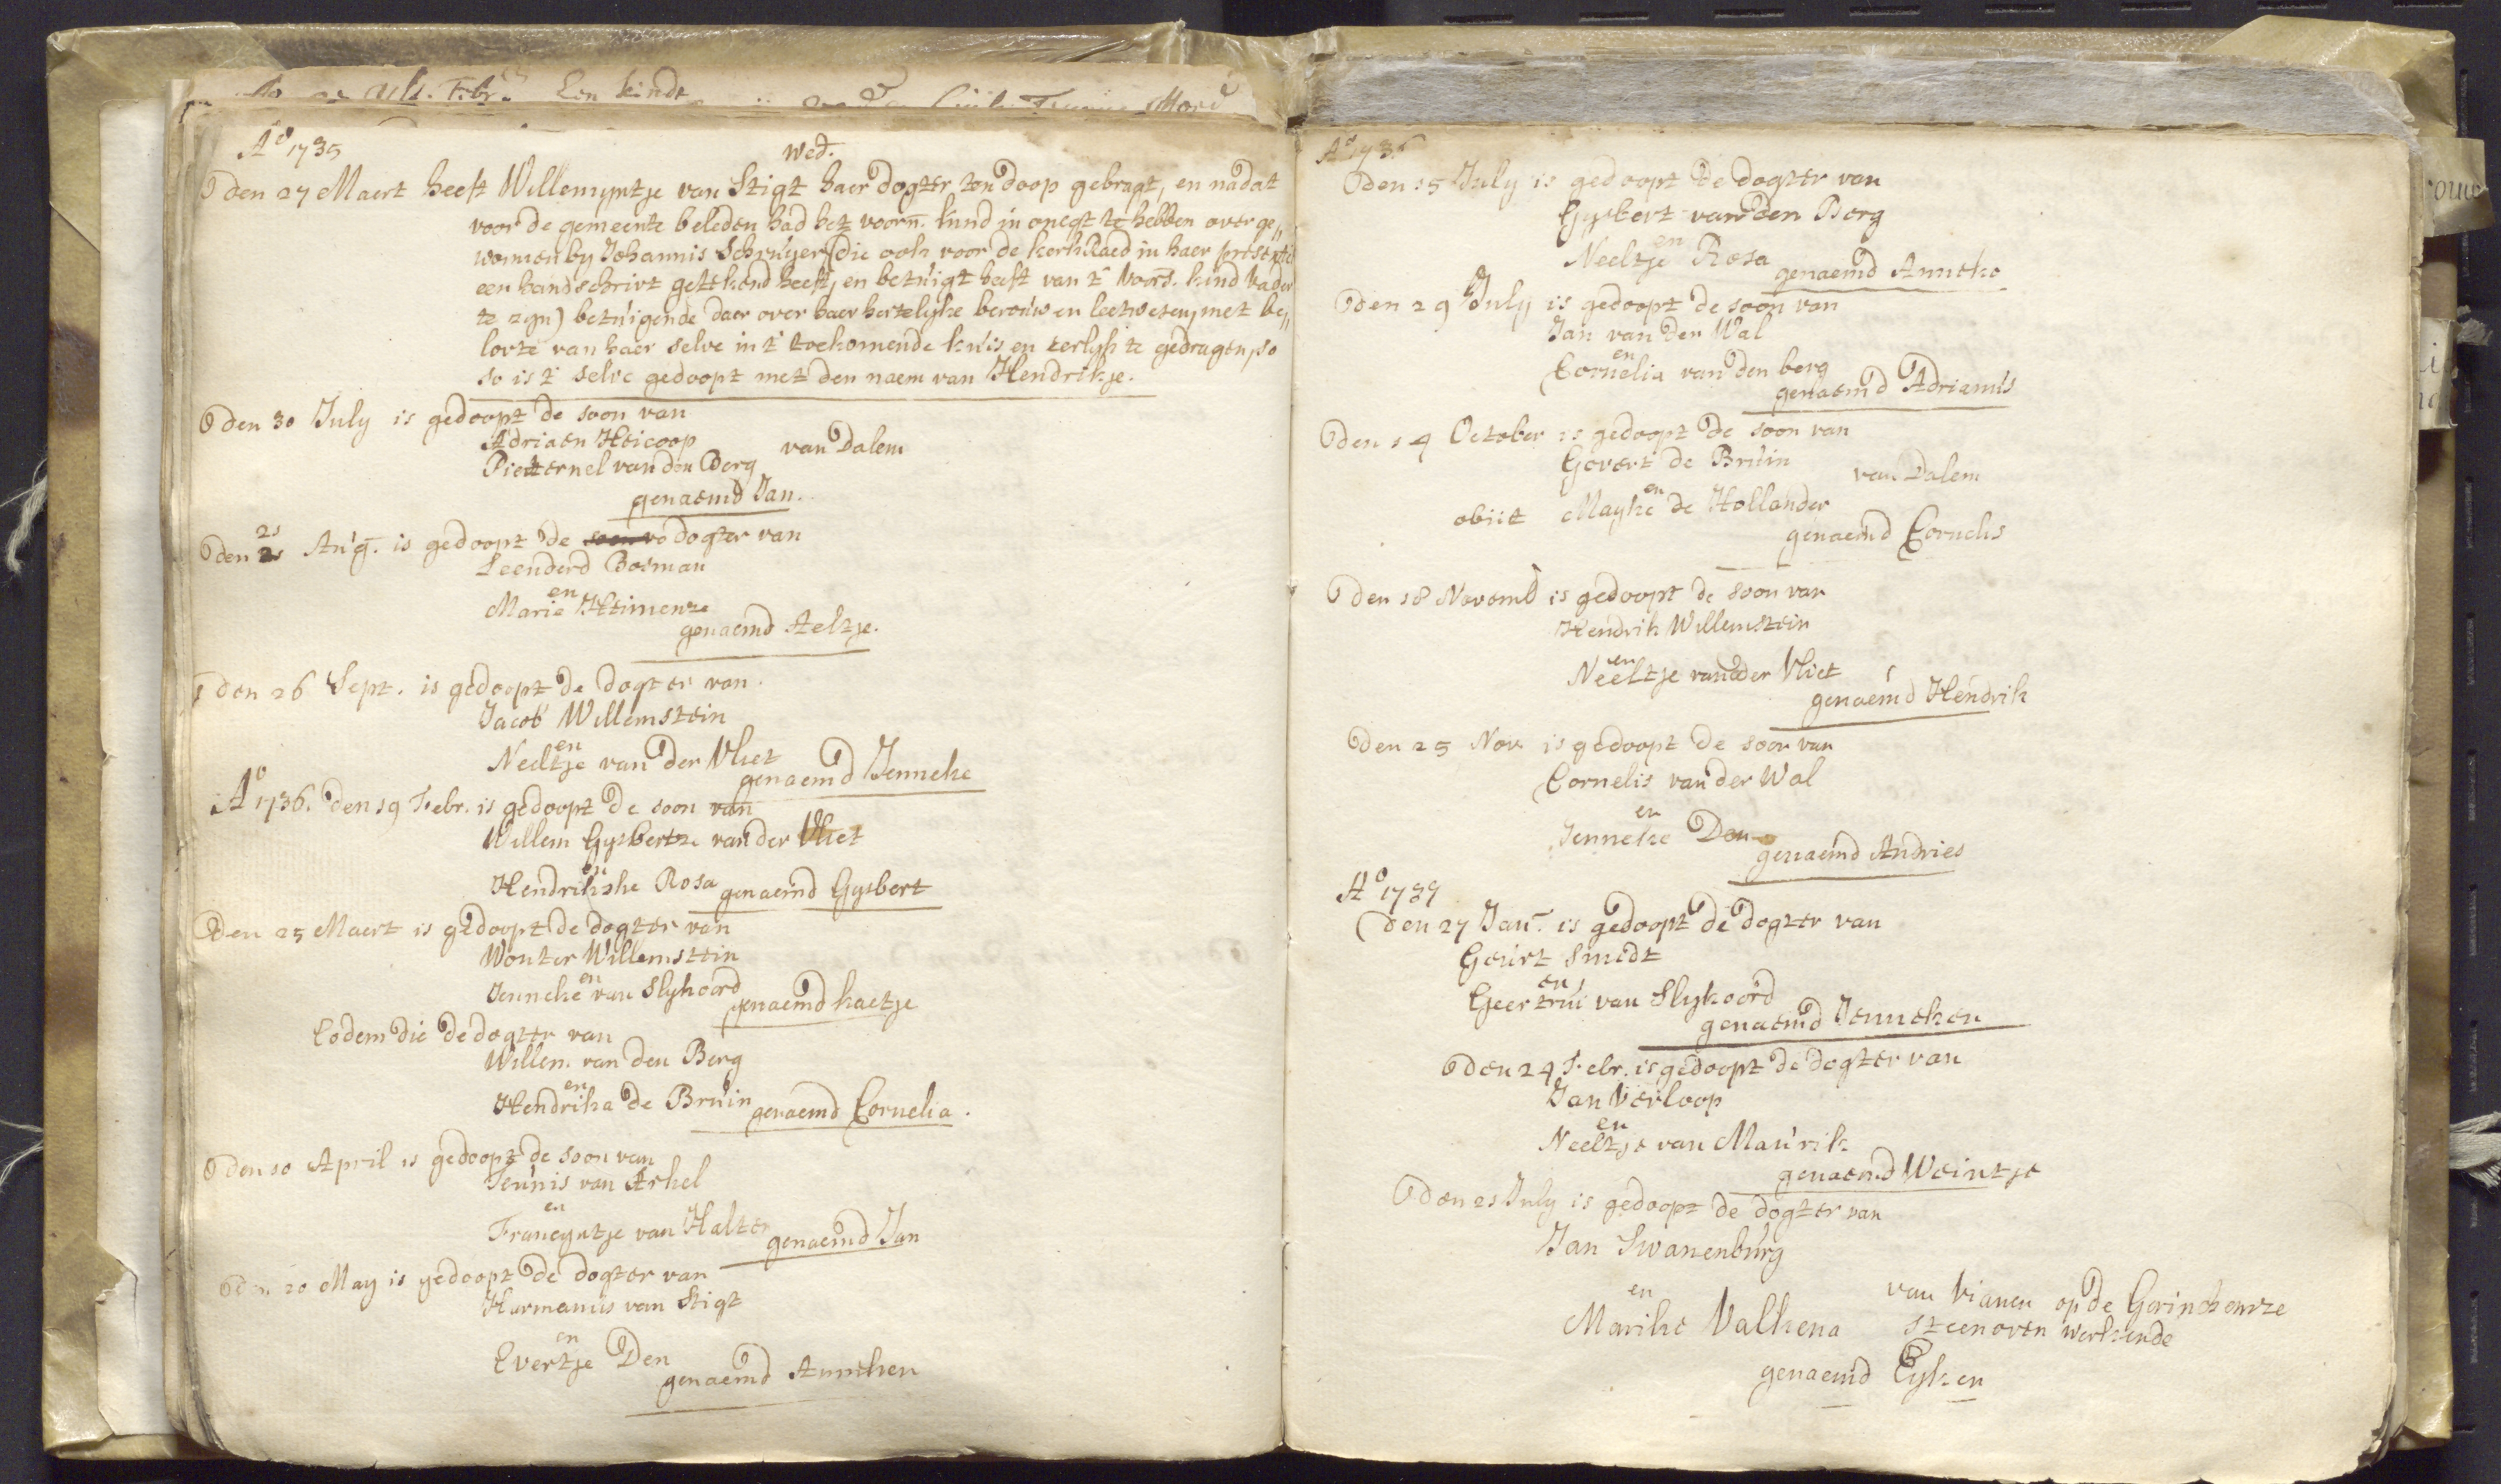 Ao 1735
wed.
den 27 Maert heeft Willemyntje van Stigt haer dogter ten doop gebragt, en nadat
voor de gemeente beleden had het voorn. kind in onegt te hebben overge„
wonnen by Johannis Schruyer (die ook voor de kerkRaed in haer presentie
een handschrivt getekend heeft, en betuigt heeft van 't voors. kind vader
te zyn) betuigende daer over haer hertelyke berouw en leetwesen, met be„
lovte van haer selve in 't toekomende kuis en eerlyk te gedragen, so
so is 't selve gedoopt met den naem van Hendrikje.
den 30 July is gedoopt de soon van
Adriaen Heicoop
van Dalem
Pieternel van den Berg
genaemd Jan.
21
den 21 Aug. is gedoopt de dogter van
Leenderd Bosman
en
Marie
genaemd Aeltje.
den 26 Sept. is gedoopt de dogter van
Jacob Willemstein
en
Neeltje van der Vliet
genaemd Jenneke
Ao 1736. den 19 Febr. is gedoopt de soon van
Willem Gysbertze van der Vliet
en
Hendrikske Rosa genaemd Gysbert
Den 25 Maert is gedoopt de dogter van
Wouter Willemstein
en
Jenneke van Slykoord
genaemd kaetje
Eodem die de dogter van
Willem van den Berg
en
Hendrika de Bruin genaemd Cornelia.
den 10 April is gedoopt de soon van
Teunis van Arkel
en
Francyntje van Halter
genaemd Jan
den 20 May is gedoopt de dogter van
Harmanus van Stigt
en
Evertje Den
genaemd Anneken
Ao 1736
den 15 July is gedoopt de dogter van
Gysbert van den Berg
en
Neeltje Rosa
genaemd Anneke
den 29 July is gedoopt de soon van
Jan van der Wal
en
Cornelia van den berg
genaemd Adrianus
den 14 October is gedoopt de soon van
Govert de Bruin
van Dalem
en
obiit Mayke de Hollander
genaemd Cornelis
den 18 Novemb is gedoopt de soon van
Hendrik Willemstein
en
Neeltje van der Vliet
genaemd Hendrik
den 25 Nov is gedoopt de soon van
Cornelis van der Wal
en
Jenneke Den
genaemd Andries
Ao 1737
den 27 Jan. is gedoopt de dogter van
Geurt Smedt
en
Geertrui van Slykoord
genaemd Jenneken
den 24 Febr. is gedoopt de dogter van
Jan Verloop
en
Neeltje van Maurik
genaemd Weintje
den 21 July is gedoopt de dogter van
Jan Swanenburg
en
van Vianen op de Gorinchemze
Marike Valkena
steenoven werkende
genaemd Eyken